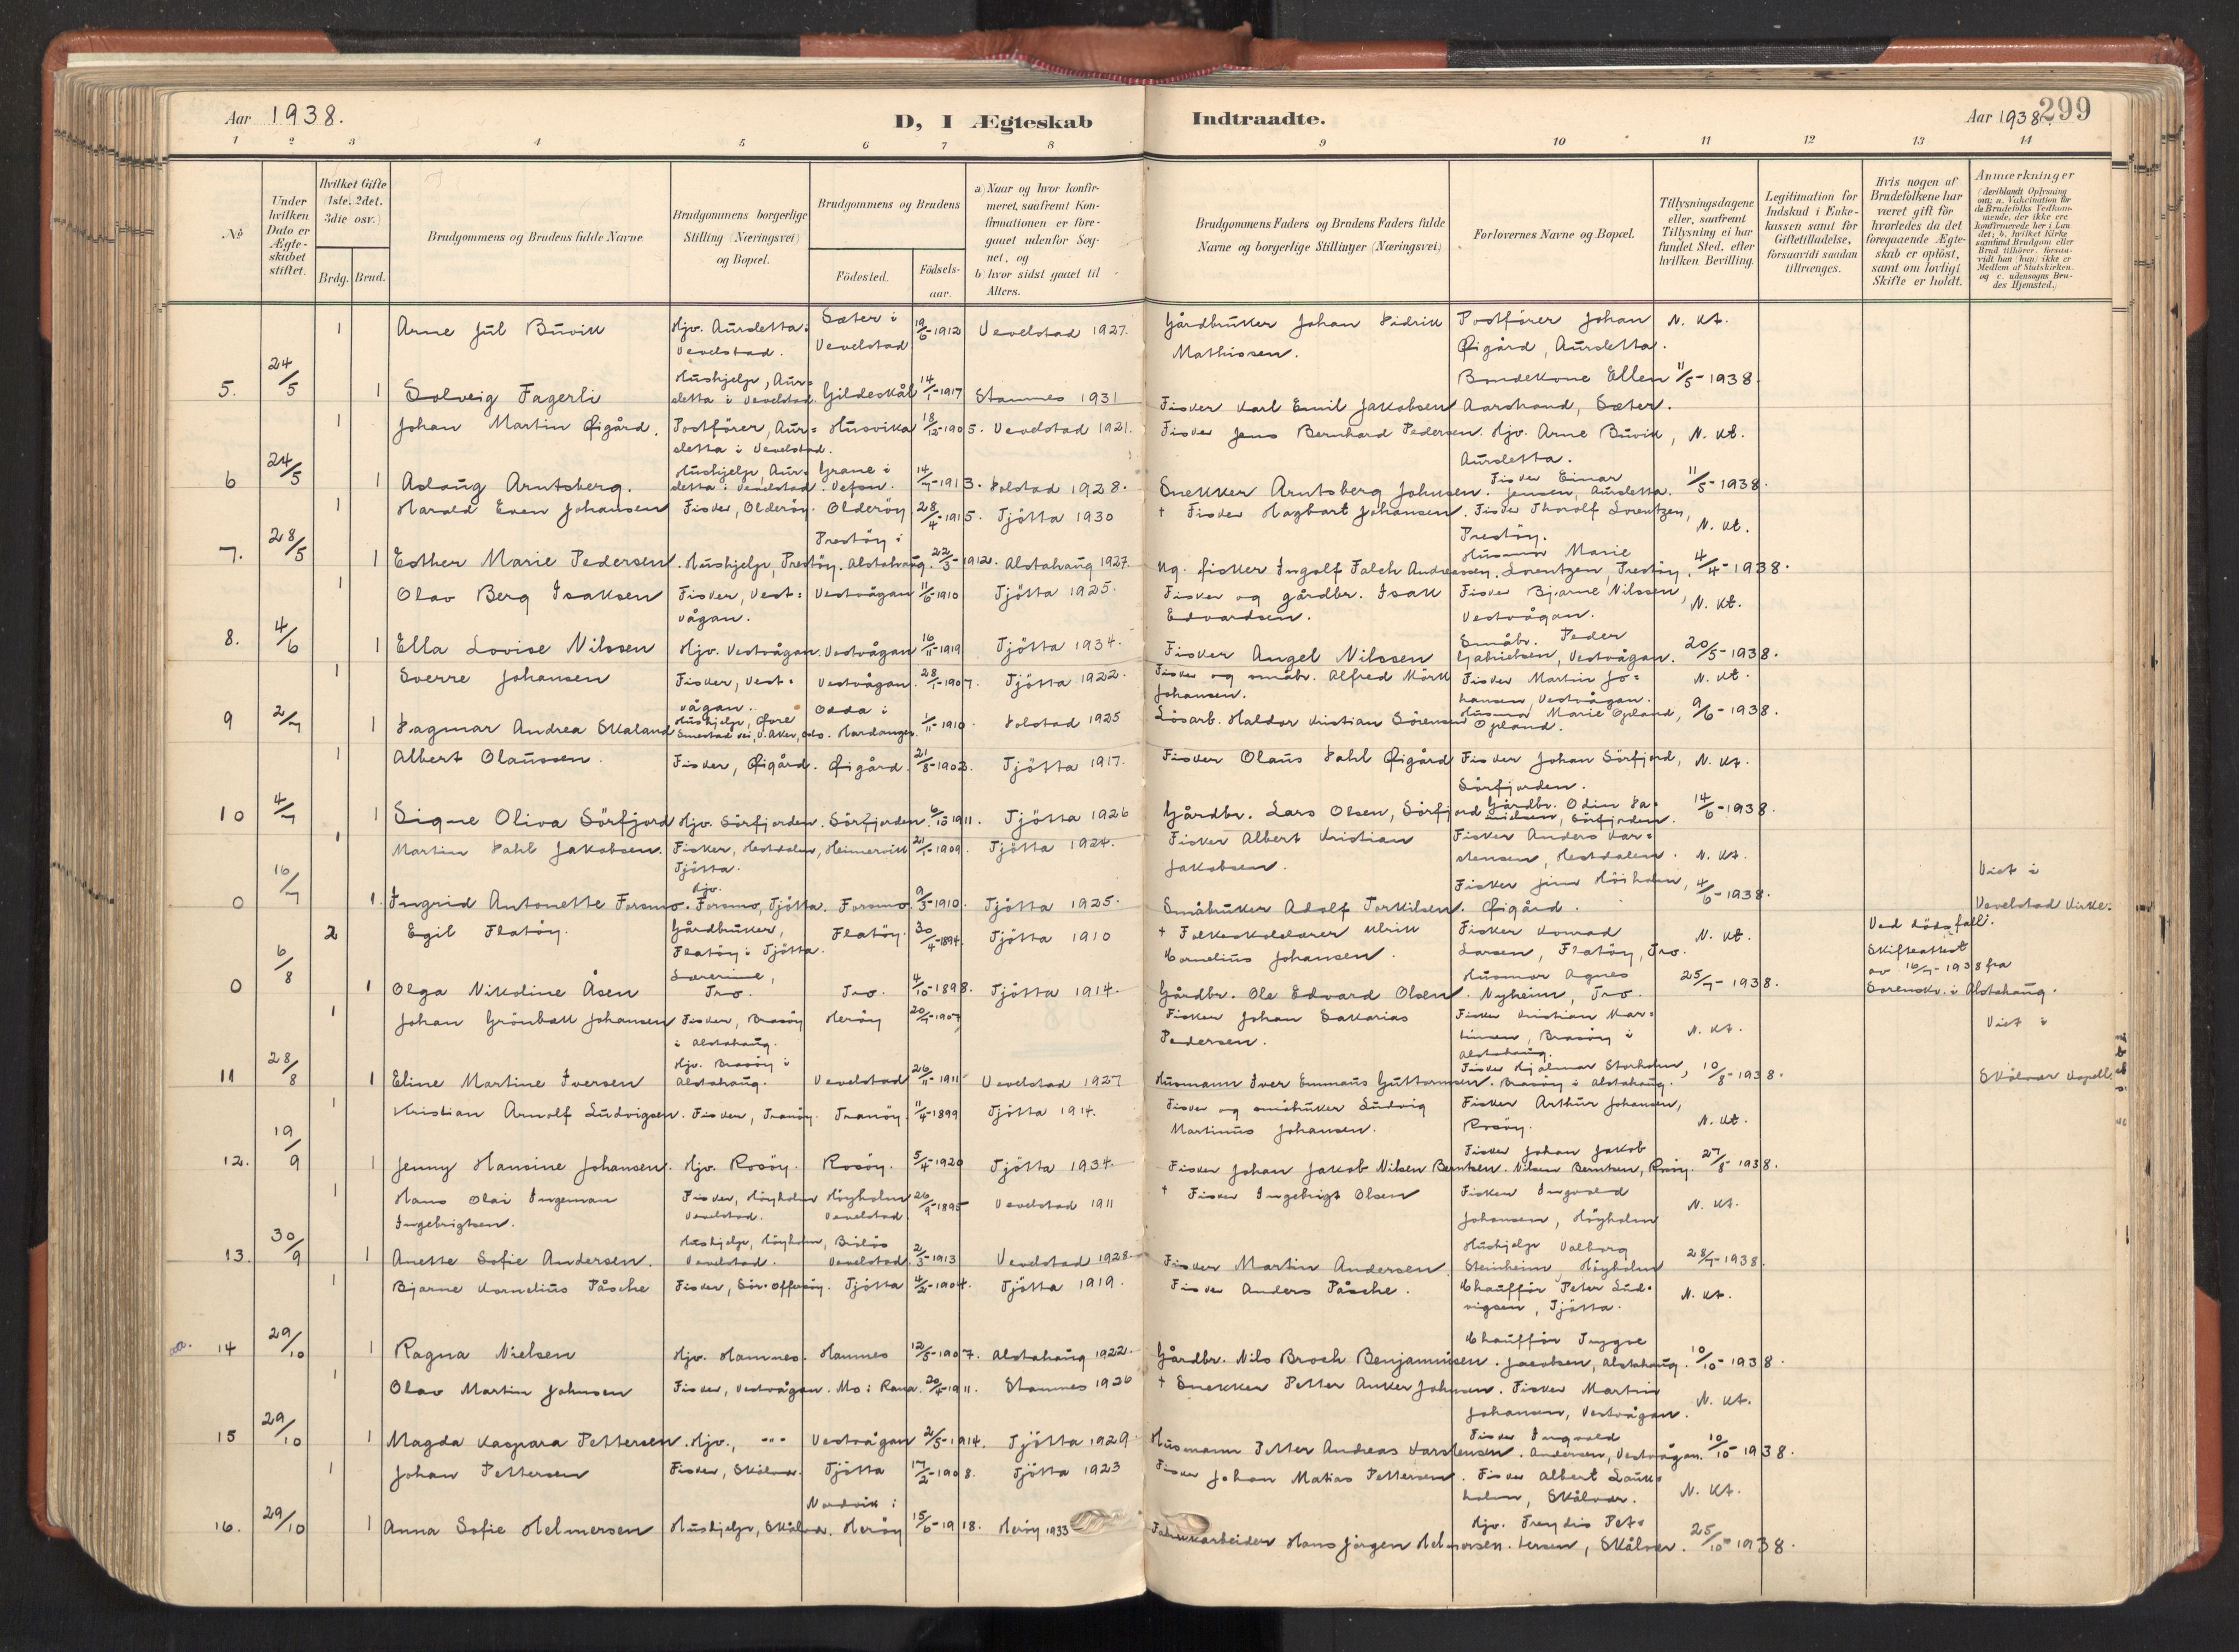 Aar 1938.
D, I Ægteskab
Indtraadte.
Aar 1938.
299
1 2 3 4 5 6 7 8 9 10 11 12 13 14
No
Under hvilken Dato er Ægteskabet stiftet.
Hvilket Gifte (1ste, 2det, 3die osv.)
Brdg. Brud.
Brudgommens og Brudens fulde Navne
Brudgommens borgerlige Stilling (Næringsvei) og Bopæl.
Brudgommens og Brudens
Födested.
Födsels-aar.
a) Naar og hvor konfirmeret, saafremt Konfirmationen er foregaaet udenfor Sognet, og
b) hvor sidst gaaet til Alters.
Brudgommens Faders og Brudens Faders fulde Navne og borgerlige Stillinger (Næringsvei)
Forlovernes Navne og Bopæl.
Tillysningsdagene eller, saafremt Tillysning ei har fundet Sted, efter hvilken Bevilling.
Legitimation for Indskud i Enkekassen samt for Giftetilladelse, forsaavidt saadan tiltrænges.
Hvis nogen af Brudefolkene har været gift för hvorledes da det foregaaende Ægteskab er oplöst, samt om lovligt Skifte er holdt.
Anmærkninger
(deriblandt Oplysning om: a. Vakcination for de Brudefolks Vedkommende, der ikke ere konfirmerede her i Landet; b. hvilket Kirkesamfund Brudgom eller Brud tilhörer, forsaavidt han (hun) ikke er Medlem af Statskirken. og c. udensogns Brudes Hjemsted.)
1 Arne Jul Buvik Hjv. Aursletta i Vevelstad. Sæter i Vevelstad 19/6-1912 Vevelstad 1927. Gårdbruker Johan Didrik Mathissen. Postförer Johan Øigård, Aursletta. N. kt.
5. 24/5 1 Solveig Fagerli Hushjelp, Aursletta i Vevelstad. Gildeskål 14/1-1917 Stamnes 1931 Fisker Karl Emil Jakobsen Bondekone Ellen Aarstrand, Sæter. 11/5-1938.
1 Johan Martin Øigård. Postförer, Aursletta i Vevelstad. Husvika 18/12-1905. Vevelstad 1921. Fisker Jens Bernhard Pedersen. Hjv. Arne Buvik, Aursletta. N. kt.
6 24/5 1 Aslaug Arntsberg. Hushjelp, Aursletta i Vevelstad. Grane i Vefsn. 14/7-1913. Dolstad 1928. Snekker Arntsberg Johnsen. Fisker Einar Jensen, Aursletta. 11/5-1938.
1 Harald Even Johansen Fisker, Olderöy. Olderöy. 28/4-1915. Tjötta 1930 † Fisker Hagbart Johansen. Fisker Thorolf Lorentzen, Prestöy. N. kt.
7. 28/5 1 Esther Marie Pedersen. Hushjelp, Prestöy. Prestöy i Alstahaug. 22/3-1912. Alstahaug 1927. Ug. fisker Ingolf Falch Andreassen. Husmor Marie Lorentzen, Prestöy. 4/4-1938.
1 Olav Berg Isaksen Fisker, Vestvågan. Vestvågan 11/6-1910 Tjötta 1925. Fisker og gårdbr. Isak Edvardsen. Fisker Bjarne Nilssen, Vestvågan. N. kt.
8. 4/6 1 Ella Lovise Nilssen Hjv. Vestvågan. Vestvågan 16/11-1919 Tjötta 1934. Fisker Angel Nilssen Småbr. Peder Gabrielsen, Vestvågan. 20/5-1938.
1 Sverre Johansen Fisker, Vestvågan. Vestvågan. 28/1-1907. Tjötta 1922. Fisker og småbr. Alfred Mörk Johansen. Fisker Martin Johansen, Vestvågan. N. kt.
9 2/7 1 Dagmar Andrea Skaland Hushjelp, Øvre Smestad vei, V. Aker, Oslo. Odda i Hardanger. 1/11-1910. Dolstad 1925 Lösarb. Haldor Kristian Sörensen Husmor Marie Opland, Opland. 9/6-1938.
1 Albert Olaussen. Fisker, Øigård. Øigård. 21/8-1902. Tjötta 1917. Fisker Olaus Dahl Øigård Fisker Johan Sörfjord, Sörfjorden. N. kt.
10 4/7 1 Signe Oliva Sörfjord Hjv. Sörfjorden. Sörfjorden. 6/10 1911. Tjötta 1926 Gårdbr. Lars Olsen, Sörfjord Gårdbr. Odin Danielsen, Sörfjorden. 14/6-1938.
1 Martin Dahl Jakobsen. Fisker, Hestdalen, Tjötta. Heimervik 21/1-1909. Tjötta 1924. Fisker Albert Kristian Jakobsen. Fisker Anders Karstensen, Hestdalen. N. kt.
0 16/7 1. Ingrid Antonette Forsmo. Hjv. Forsmo, Tjötta. Forsmo. 9/3-1910. Tjötta 1925. Småbruker Adolf Torkilsen. Fisker Jim Höiholm, Øigård. 4/6-1938. Viet i Vevelstad kirke.
2 Egil Flatöy. Gårdbruker, Flatöy i Tjötta. Flatöy. 30/4-1894. Tjötta 1910 † Folkeskolelærer Ulrik Cornelius Johansen. Fisker Konrad Larsen, Flatöy, Tro. N. kt. Ved dödsfall. Skifteattest av 16/7-1938 fra Sorenskr. i Alstahaug.
0 6/8 1 Olga Nikoline Åsen Lærerinne, Tro. Tro. 4/10-1898. Tjötta 1914. Gårdbr. Ole Edvard Olsen. Husmor Agnes Nyheim, Tro. 25/7-1938.
1 Johan Grönbæk Johansen Fisker, Brasöy i Alstahaug. Heröy 20/7-1907 Fisker Johan Sakarias Pedersen. Fisker Kristian Martinsen, Brasöy i Alstahaug. N. kt. Viet i
11 28/8 1 Eline Martine Iversen Hjv. Brasöy i Alstahaug. Vevelstad 26/11-1911 Vevelstad 1927 Husmann Iver Emmaus Guttormsen. Fisker Hjalmar Storholm, Brasöy i Alstahaug. 10/8-1938. Skålvær kapell.
1 Kristian Arnolf Ludvigsen. Fisker, Tranöy. Tranöy. 11/4-1899 Tjötta 1914. Fisker og småbruker Ludvig Martinus Johansen. Fisker Arthur Johansen, Rosöy. N. kt.
12. 19/9 1 Jenny Hansine Johansen. Hjv. Rosöy. Rosöy. 5/4-1920 Tjötta 1934. Fisker Johan Jakob Nilsen Berntsen. Fisker Johan Jakob Nilsen Berntsen, Rosöy. 27/8-1938.
1 Hans Olai Ingeman Ingebrigtsen. Fisker, Höyholm Vevelstad. Höyholm Vevelstad. 26/9-1895 Vevelstad 1911 † Fisker Ingebrigt Olsen Fisker Ingvald Johansen, Höyholm N. kt.
13. 30/9 1 Anette Sofie Andersen. Hushjelp, Höyholm, Vevelstad. Vevelstad. 2/3-1913 Vevelstad 1928. Fisker Martin Andersen Hushjelp Valborg Steinheim, Höyholm 28/7-1938.
1 Bjarne Kornelius Påsche Fisker, Sör-Offersöy. Tjötta 4/2-1904. Tjötta 1919. Fisker Anders Påsche. Chaufför Peter Ludvigsen, Tjötta. N. kt.
14 29/10 1 Ragna Nielsen Hjv. Hamnes. Hamnes 12/5-1907. Alstahaug 1922. Gårdbr. Nils Broch Benjaminsen. Chaufför Trygve Jacobsen, Alstahaug. 10/10-1938.
1 Olav Martin Johnsen Fisker, Vestvågan. Mo i Rana. 20/4-1911. Stamnes 1926 † Snekker Petter Anker Johnsen. Fisker Martin Johansen, Vestvågan. N. kt.
15 29/10 1 Magda Kaspara Pettersen. Hjv., -"- Vestvågan 2/5-1914. Tjötta 1929. Husmann Petter Andreas Karstensen. Fisker Ingvald Andersen, Vestvågan. 10/10-1938.
1 Johan Pettersen Fisker, Skålvær. Tjötta 17/2-1908. Tjötta 1923 Fisker Johan Matias Pettersen. Fisker Albert Laukholm, Skålvær. N. kt.
16. 29/10 1 Anna Sofie Helmersen Hushjelp, Skålvær. Nordvik i Heröy 15/6-1918. Heröy 1933 Fabrikkarbeider Hans Jörgen Helmersen. Hjv. Freydis Pettersen, Skålvær. 25/10-1938.